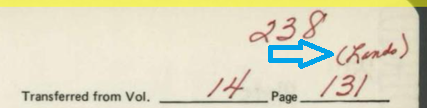 238
(Lands)
Transferred from Vol. 14 Page 131